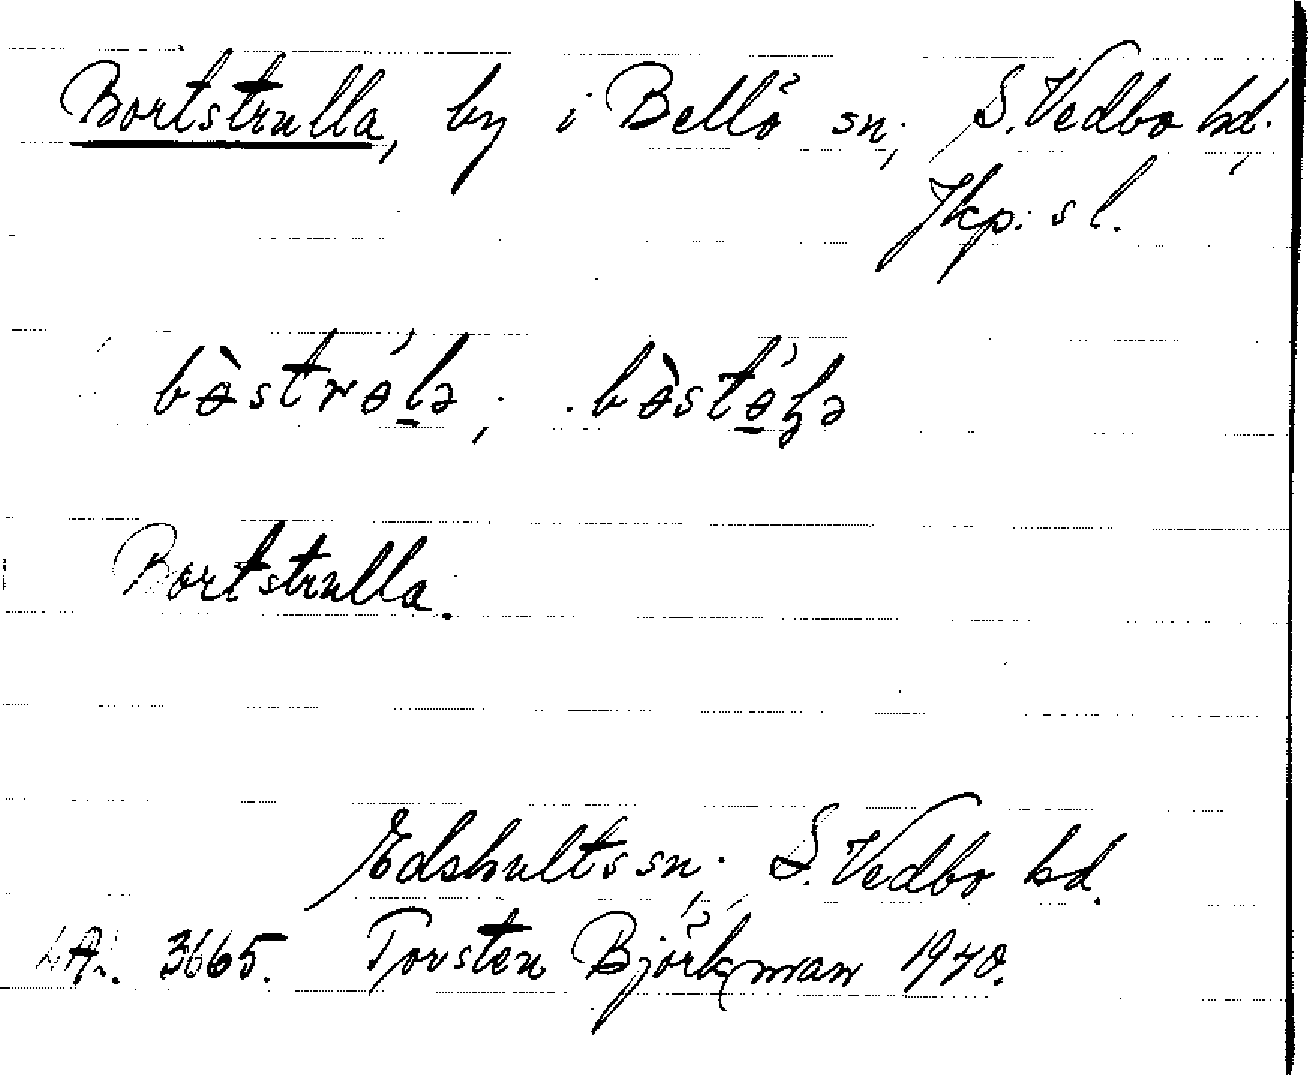 Bortstrulla, by i Bellö sn, S. Vedbo hd,
Jkp:s l.
bɵ̀strɵ́lə, bɵ̀stɵ́lə
Bortstrulla.
Edshults sn, S. Vedbo hd.
3665. Torsten Björkman 1940.